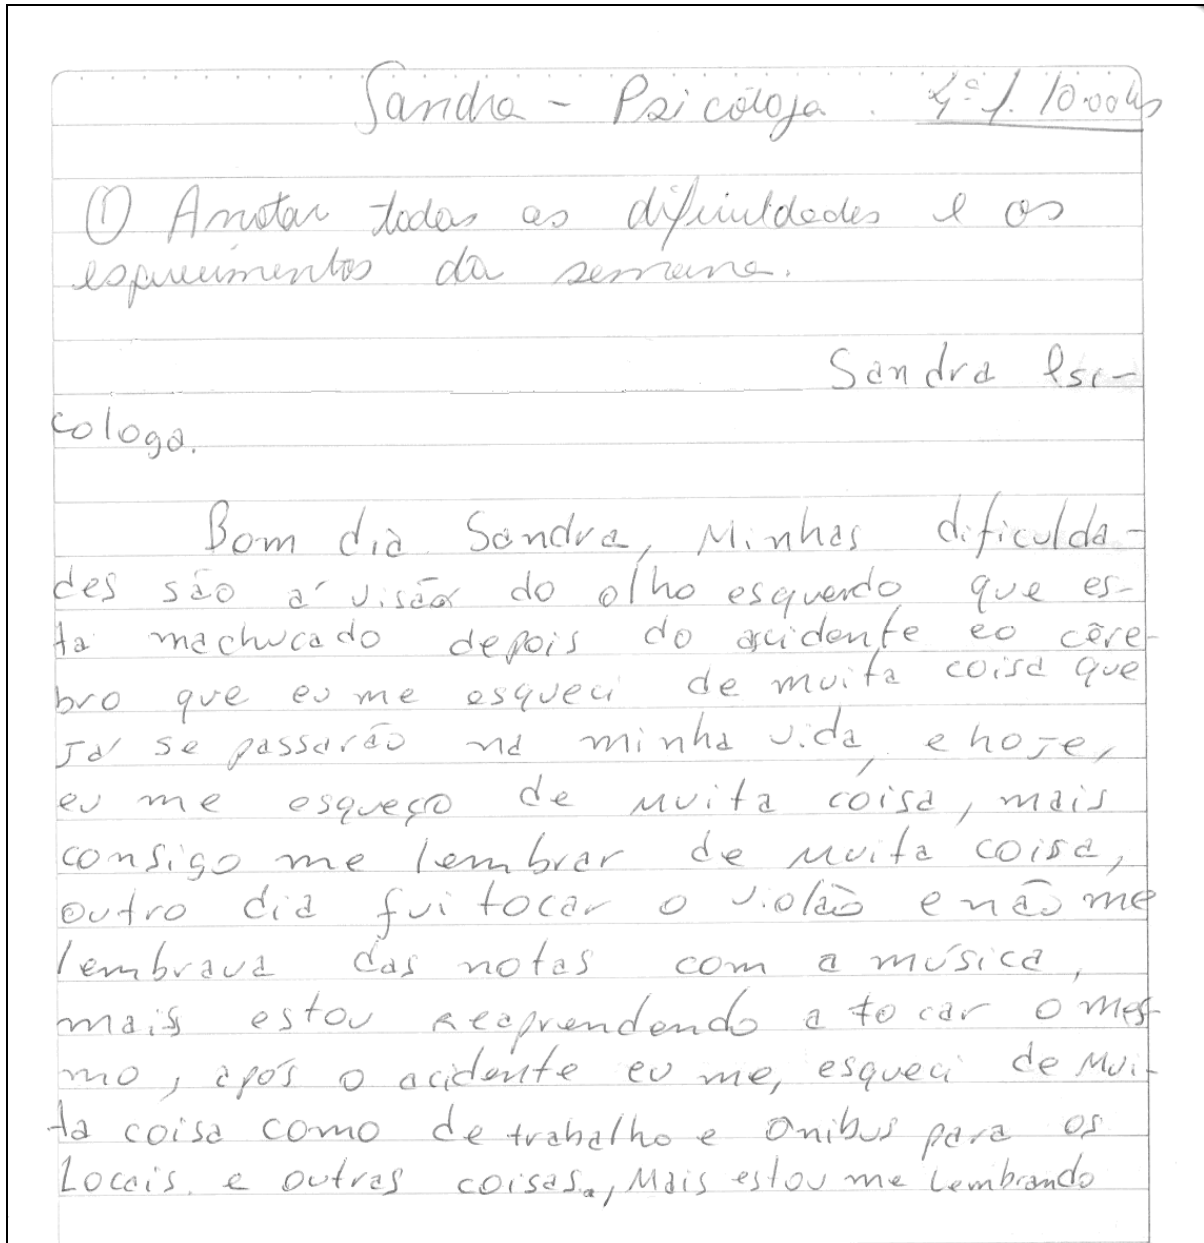 Sandra - Psicóloga. 4ª f. 10:00hs
① Anotar todas as dificuldades e os
esquecimentos da semana.
Sandra Psi-
cologa.
Bom dia Sandra, Minhas dificulda-
des são a visão do olho esquerdo que es-
ta machucado depois do acidente eo cêre-
bro que eu me esqueci de muita coisa que
Ja se passarão na minha vida, e hoJe,
eu me esqueço de Muita coisa, mais
consigo me lembrar de Muita coisa,
outro dia fui tocar o violão e não me
lembrava das notas com a música,
mais estou Reaprendendo a tocar o mes-
mo, após o acidente eu me, esqueci de Mui-
ta coisa como de trabalho e Onibus para os
Locais, e outras coisas., Mais estou me Lembrando